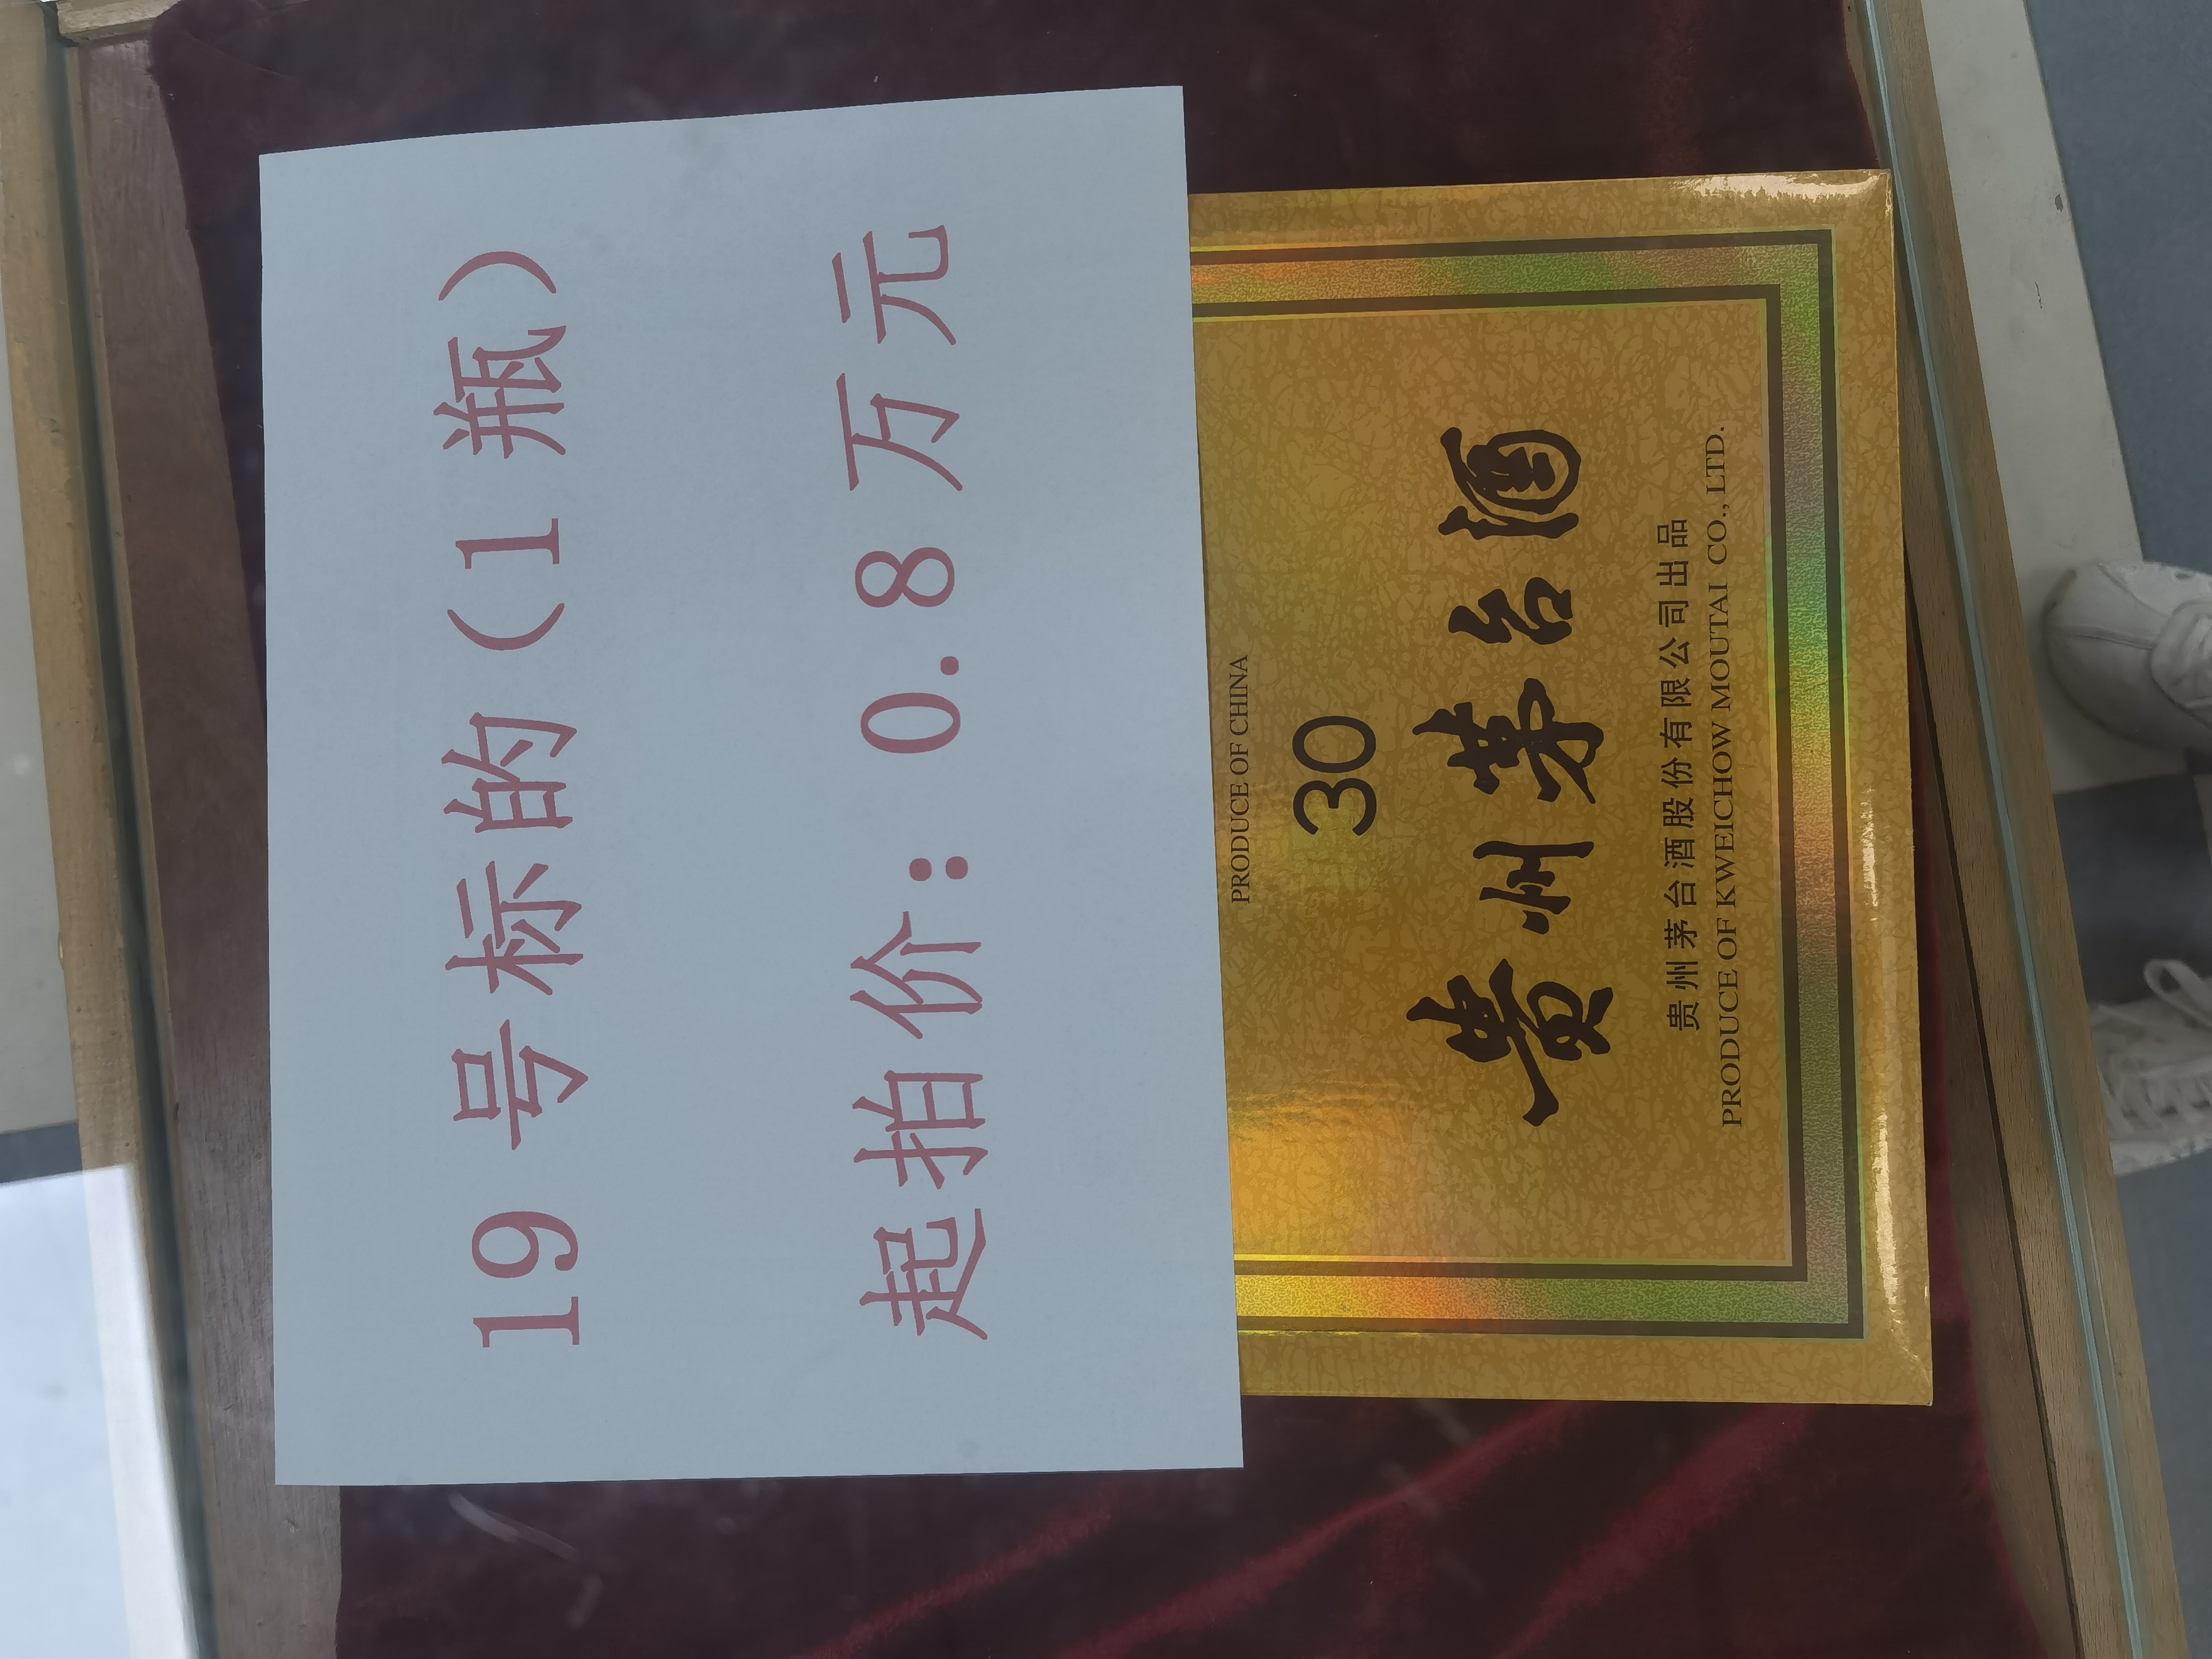 19 号标的（1 瓶）
起拍价：0.8 万元
PRODUCE OF CHINA
30
貴州茅台酒
贵州茅台酒股份有限公司出品
PRODUCE OF KWEICHOW MOUTAI CO., LTD.